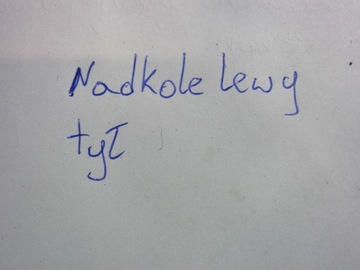 Nadkole lewy
tył